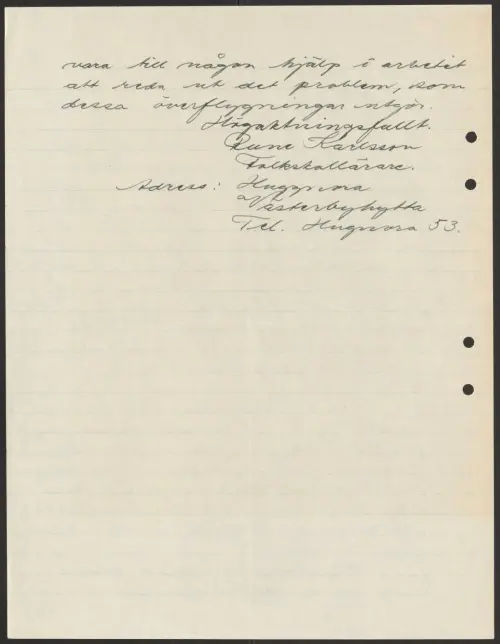 vara till någon hjälp i arbetet
att reda ut det problem, som
dessa överflygningar utgör.
Högaktningsfullt.
Rune Karlsson
Folkskollärare.
Adress: Hugnora
Västerbyhytta
Tel. Hugnora 53.